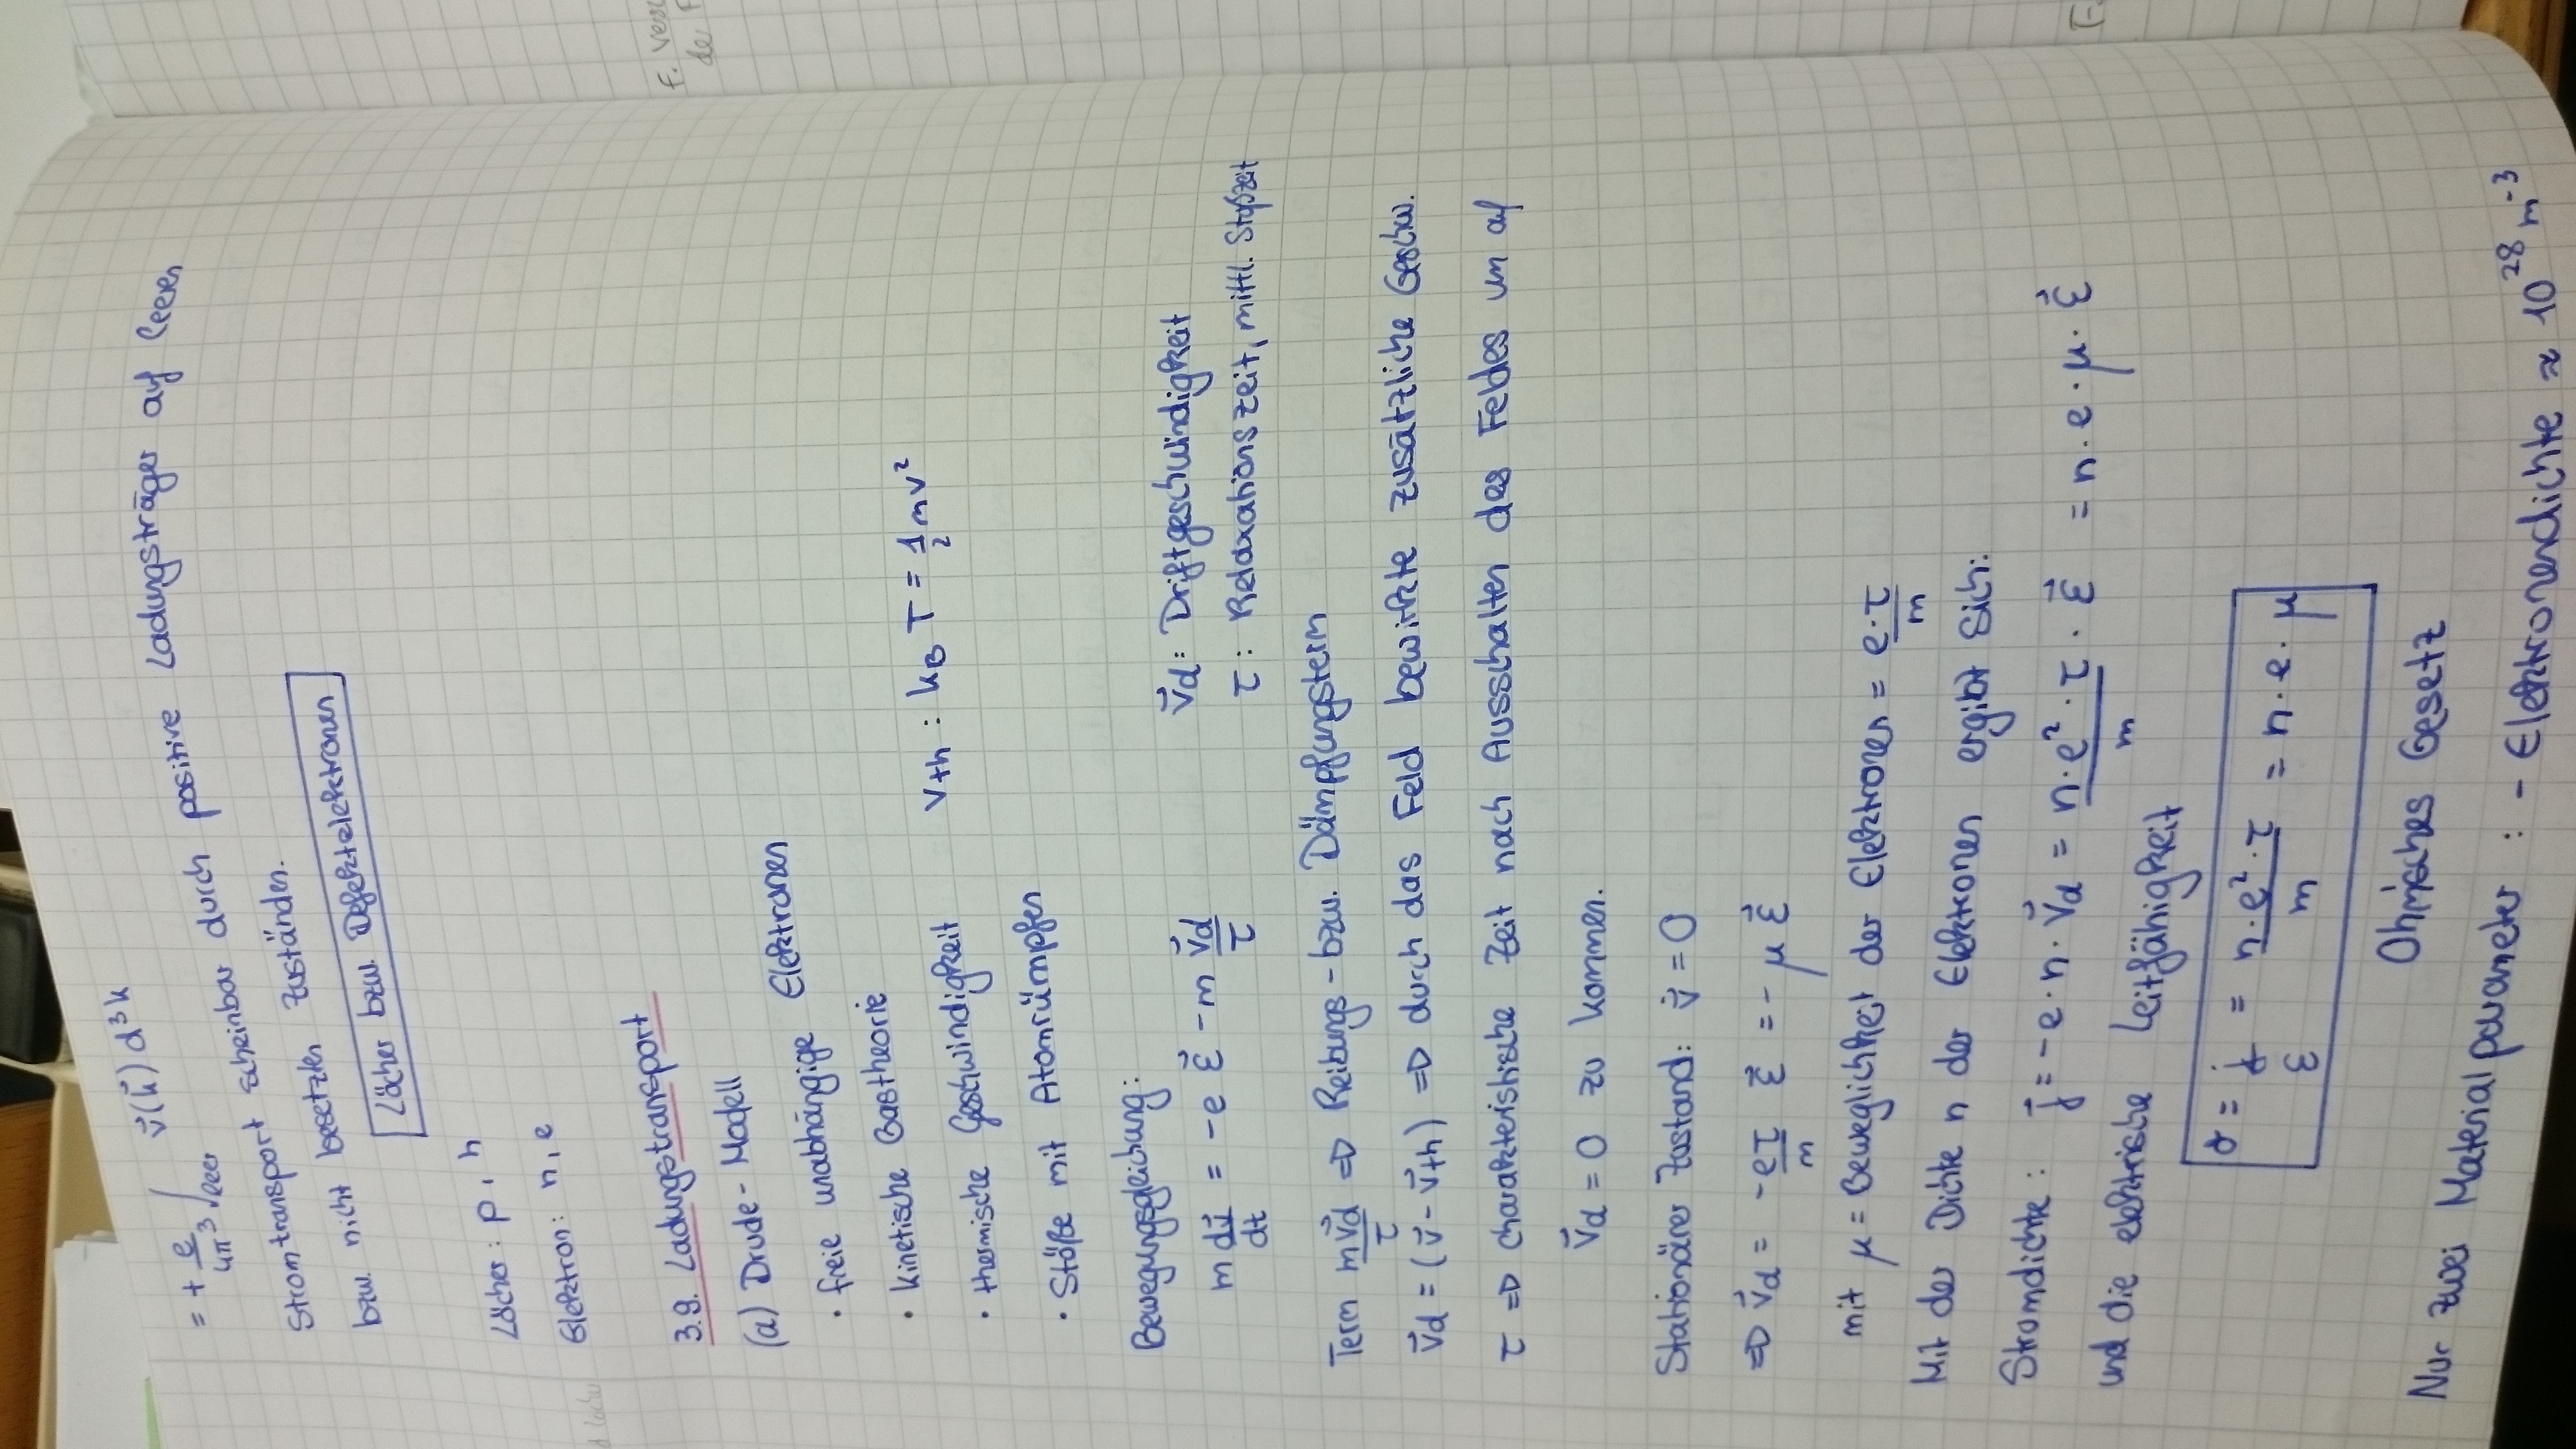 = + e/4π³ ∫leer v⃗(k⃗) d³k
Stromtransport scheinbar durch positive Ladungsträger auf leeren
bzw. nicht besetzten Zuständen.
Löcher bzw. Defektelektronen
Löcher: p, h
Elektron: n, e
3.9. Ladungstransport
(a) Drude-Modell
• freie unabhängige Elektronen
• kinetische Gastheorie
• thermische Geschwindigkeit v_th : k_B T = 1/2 mv²
• Stöße mit Atomrümpfen
Bewegungsgleichung:
m dv⃗/dt = -e ε⃗ - m v⃗d/τ v⃗d: Driftgeschwindigkeit
τ: Relaxationszeit, mittl. Stoßzeit
Term mv⃗d/τ ⇒ Reibungs- bzw. Dämpfungsterm
v⃗d = (v⃗ - v⃗th) ⇒ durch das Feld bewirkte zusätzliche Geschw.
τ ⇒ charakteristische Zeit nach Ausschalten des Feldes um auf
v⃗d = 0 zu kommen.
Stationärer Zustand: v̇ = 0
⇒ v⃗d = -eτ/m ε⃗ = - μ ε⃗
mit μ = Beweglichkeit der Elektronen = e·τ/m
Mit der Dichte n der Elektronen ergibt sich:
Stromdichte: j⃗ = -e·n·v⃗d = n·e²·τ/m · ε⃗ = n·e·μ·ε⃗
und die elektrische Leitfähigkeit
σ = j/ε = n·e²·τ/m = n·e·μ
Ohm'sches Gesetz
Nur zwei Materialparameter : - Elektronendichte ≈ 10²⁸ m⁻³